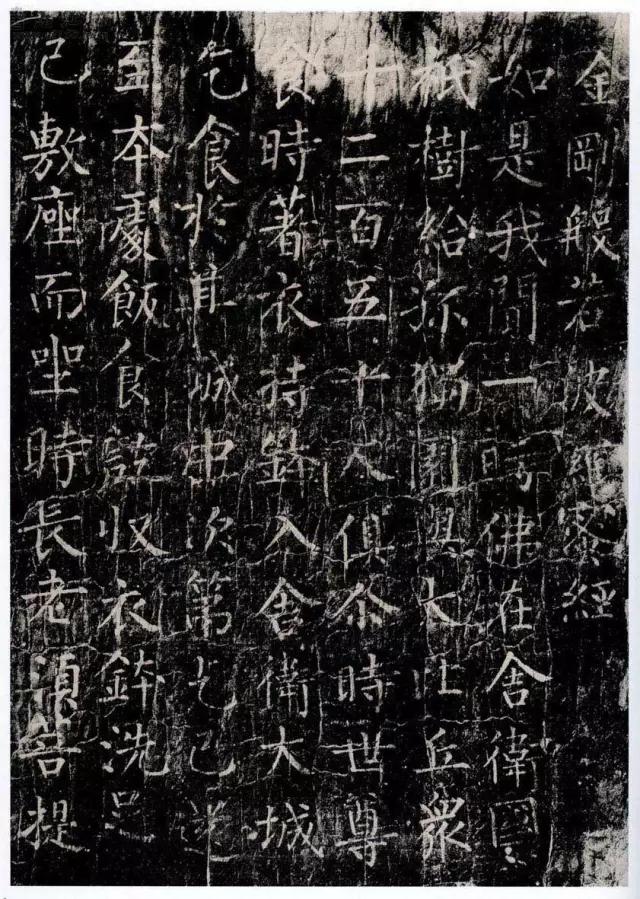 金剛般若波羅蜜經
如是我聞一時佛在舍衛國
祇樹給孤獨園與大比丘眾
千二百五十人俱尒時世尊
食時著衣持鉢入舍衛大城
乞食於其城中次第乞已還
至本處飯食訖収衣鉢洗足
已敷座而坐時長老須菩提